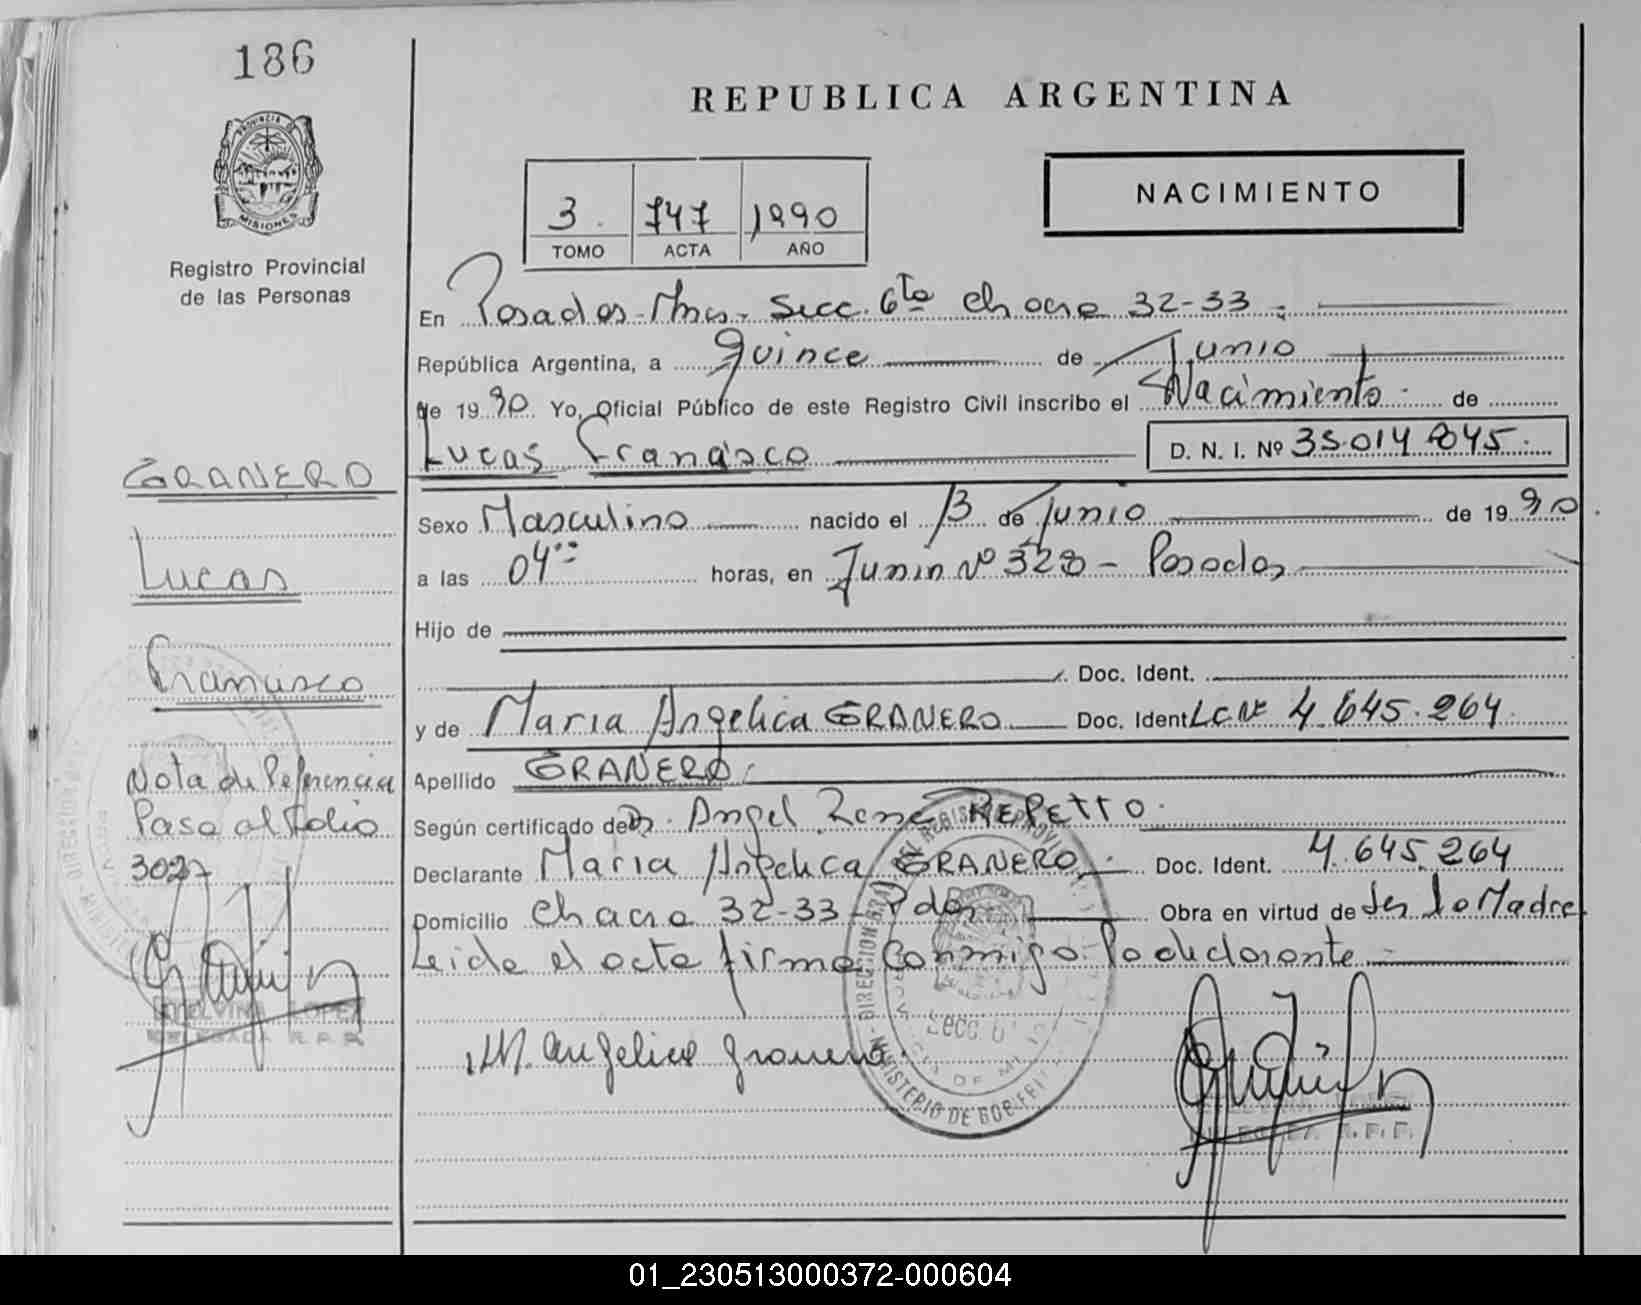 186
REPUBLICA ARGENTINA
PROVINCIA DE
MISIONES
Registro Provincial
de las Personas
NACIMIENTO
3 747 1990
TOMO ACTA AÑO
En Posadas-Mnes. Secc. 6ta Chacra 32-33
República Argentina, a quince de Junio
de 1990 Yo, Oficial Público de este Registro Civil inscribo el Nacimiento de
Lucas Francisco D. N. I. Nº 35.014.845
Sexo Masculino nacido el 13 de Junio de 1990
a las 04 horas, en Junin Nº 328 - Posadas
Hijo de
Doc. Ident.
y de Maria Angelica GRANERO Doc. Ident LC Nº 4.645.264
Apellido GRANERO
Según certificado de Dr. Angel Rene REPETTO
Declarante Maria Angelica GRANERO Doc. Ident. 4.645.264
Domicilio Chacra 32-33 - Pdas Obra en virtud de ser la Madre
Leida el acta firma conmigo la declarante
M. Angelica Granero
GRANERO
Lucas
Francisco
Nota de Referencia
Pasa al Folio
3027
ETELVINA LOPEZ
DELEGADA R.P.P.
Secc. 6
MINISTERIO DE GOB
01_230513000372-000604